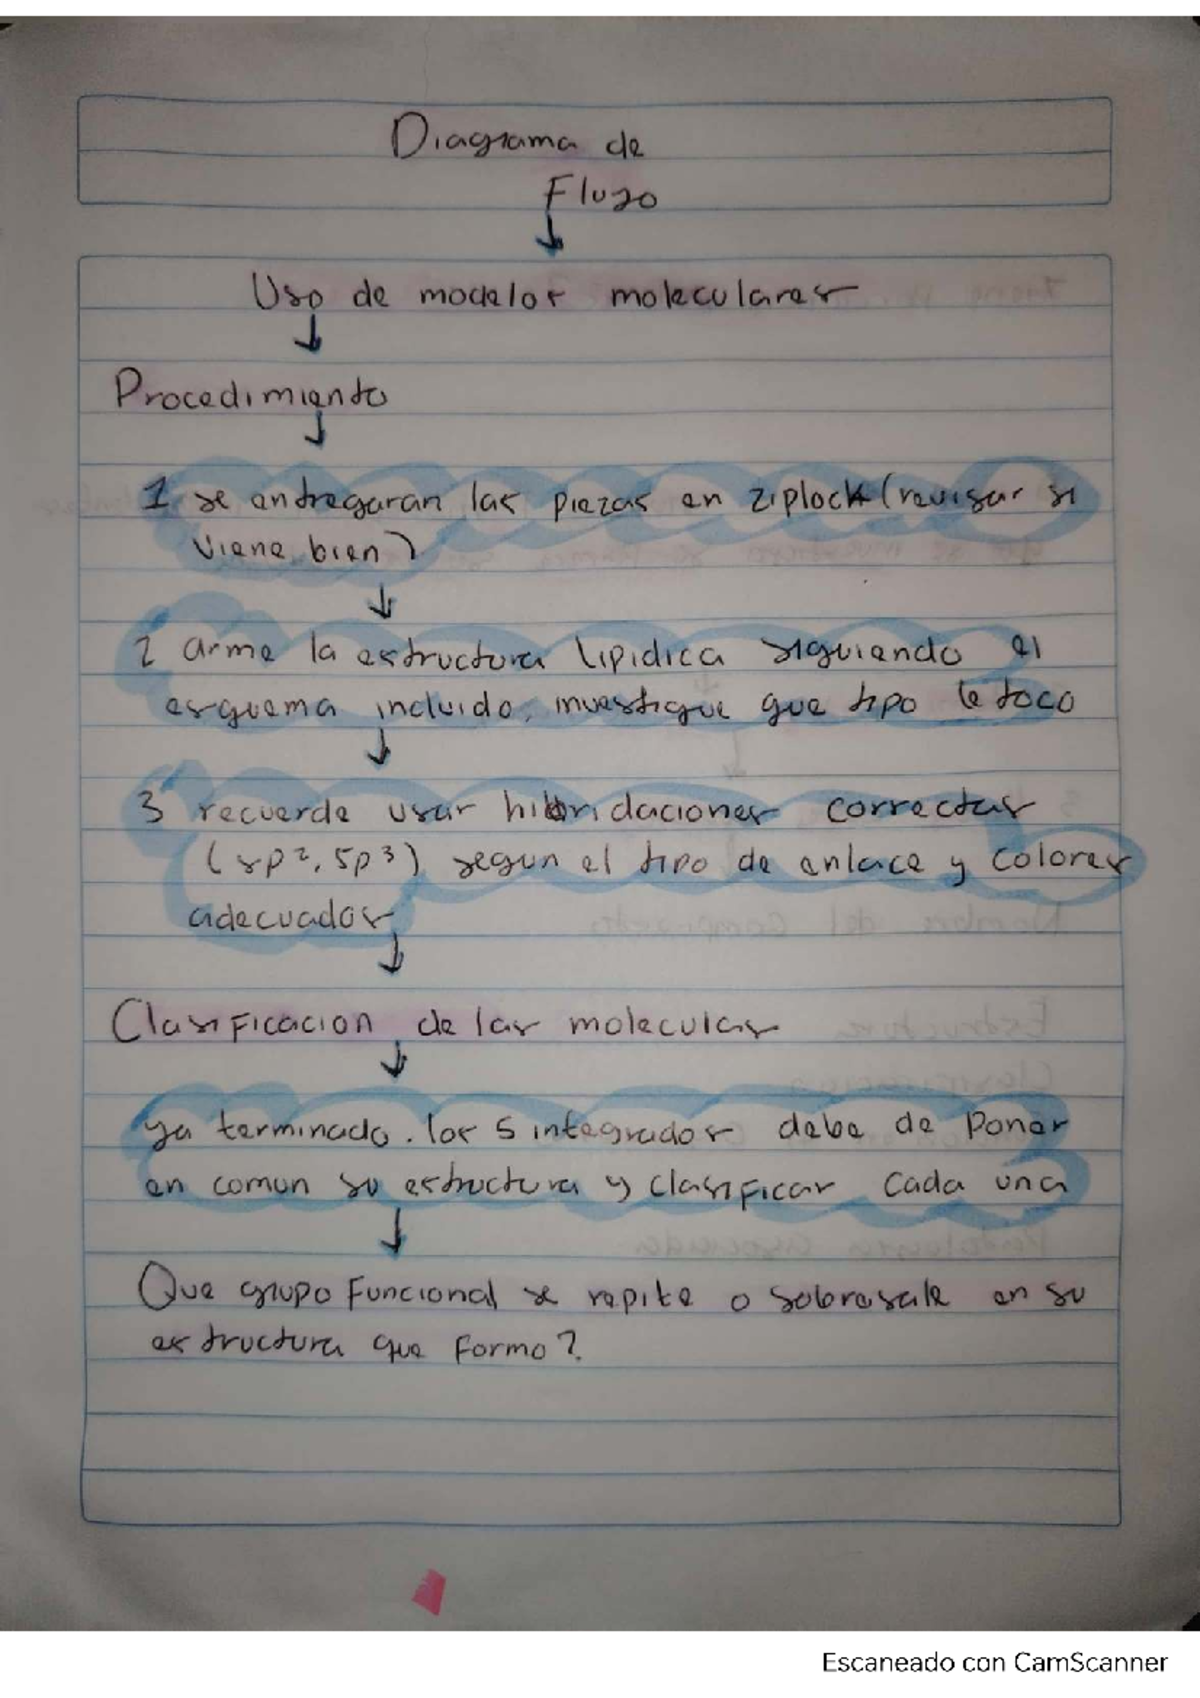 Diagrama de
Flujo
Uso de modelos moleculares
Procedimiento
1 se entregaran las piezas en ziplock (revisar si
viene bien)
2 arme la estructura lipidica siguiendo el
esquema incluido, investigue que tipo le toco
3 recuerde usar hibridaciones correctas
(sp², sp³) segun el tipo de enlace y colores
adecuados
Clasificacion de las moleculas
ya terminado. los 5 integrados debe de poner
en comun su estructura y clasificar cada una
Que grupo Funcional se repite o sobresale en su
estructura que formo?
Escaneado con CamScanner